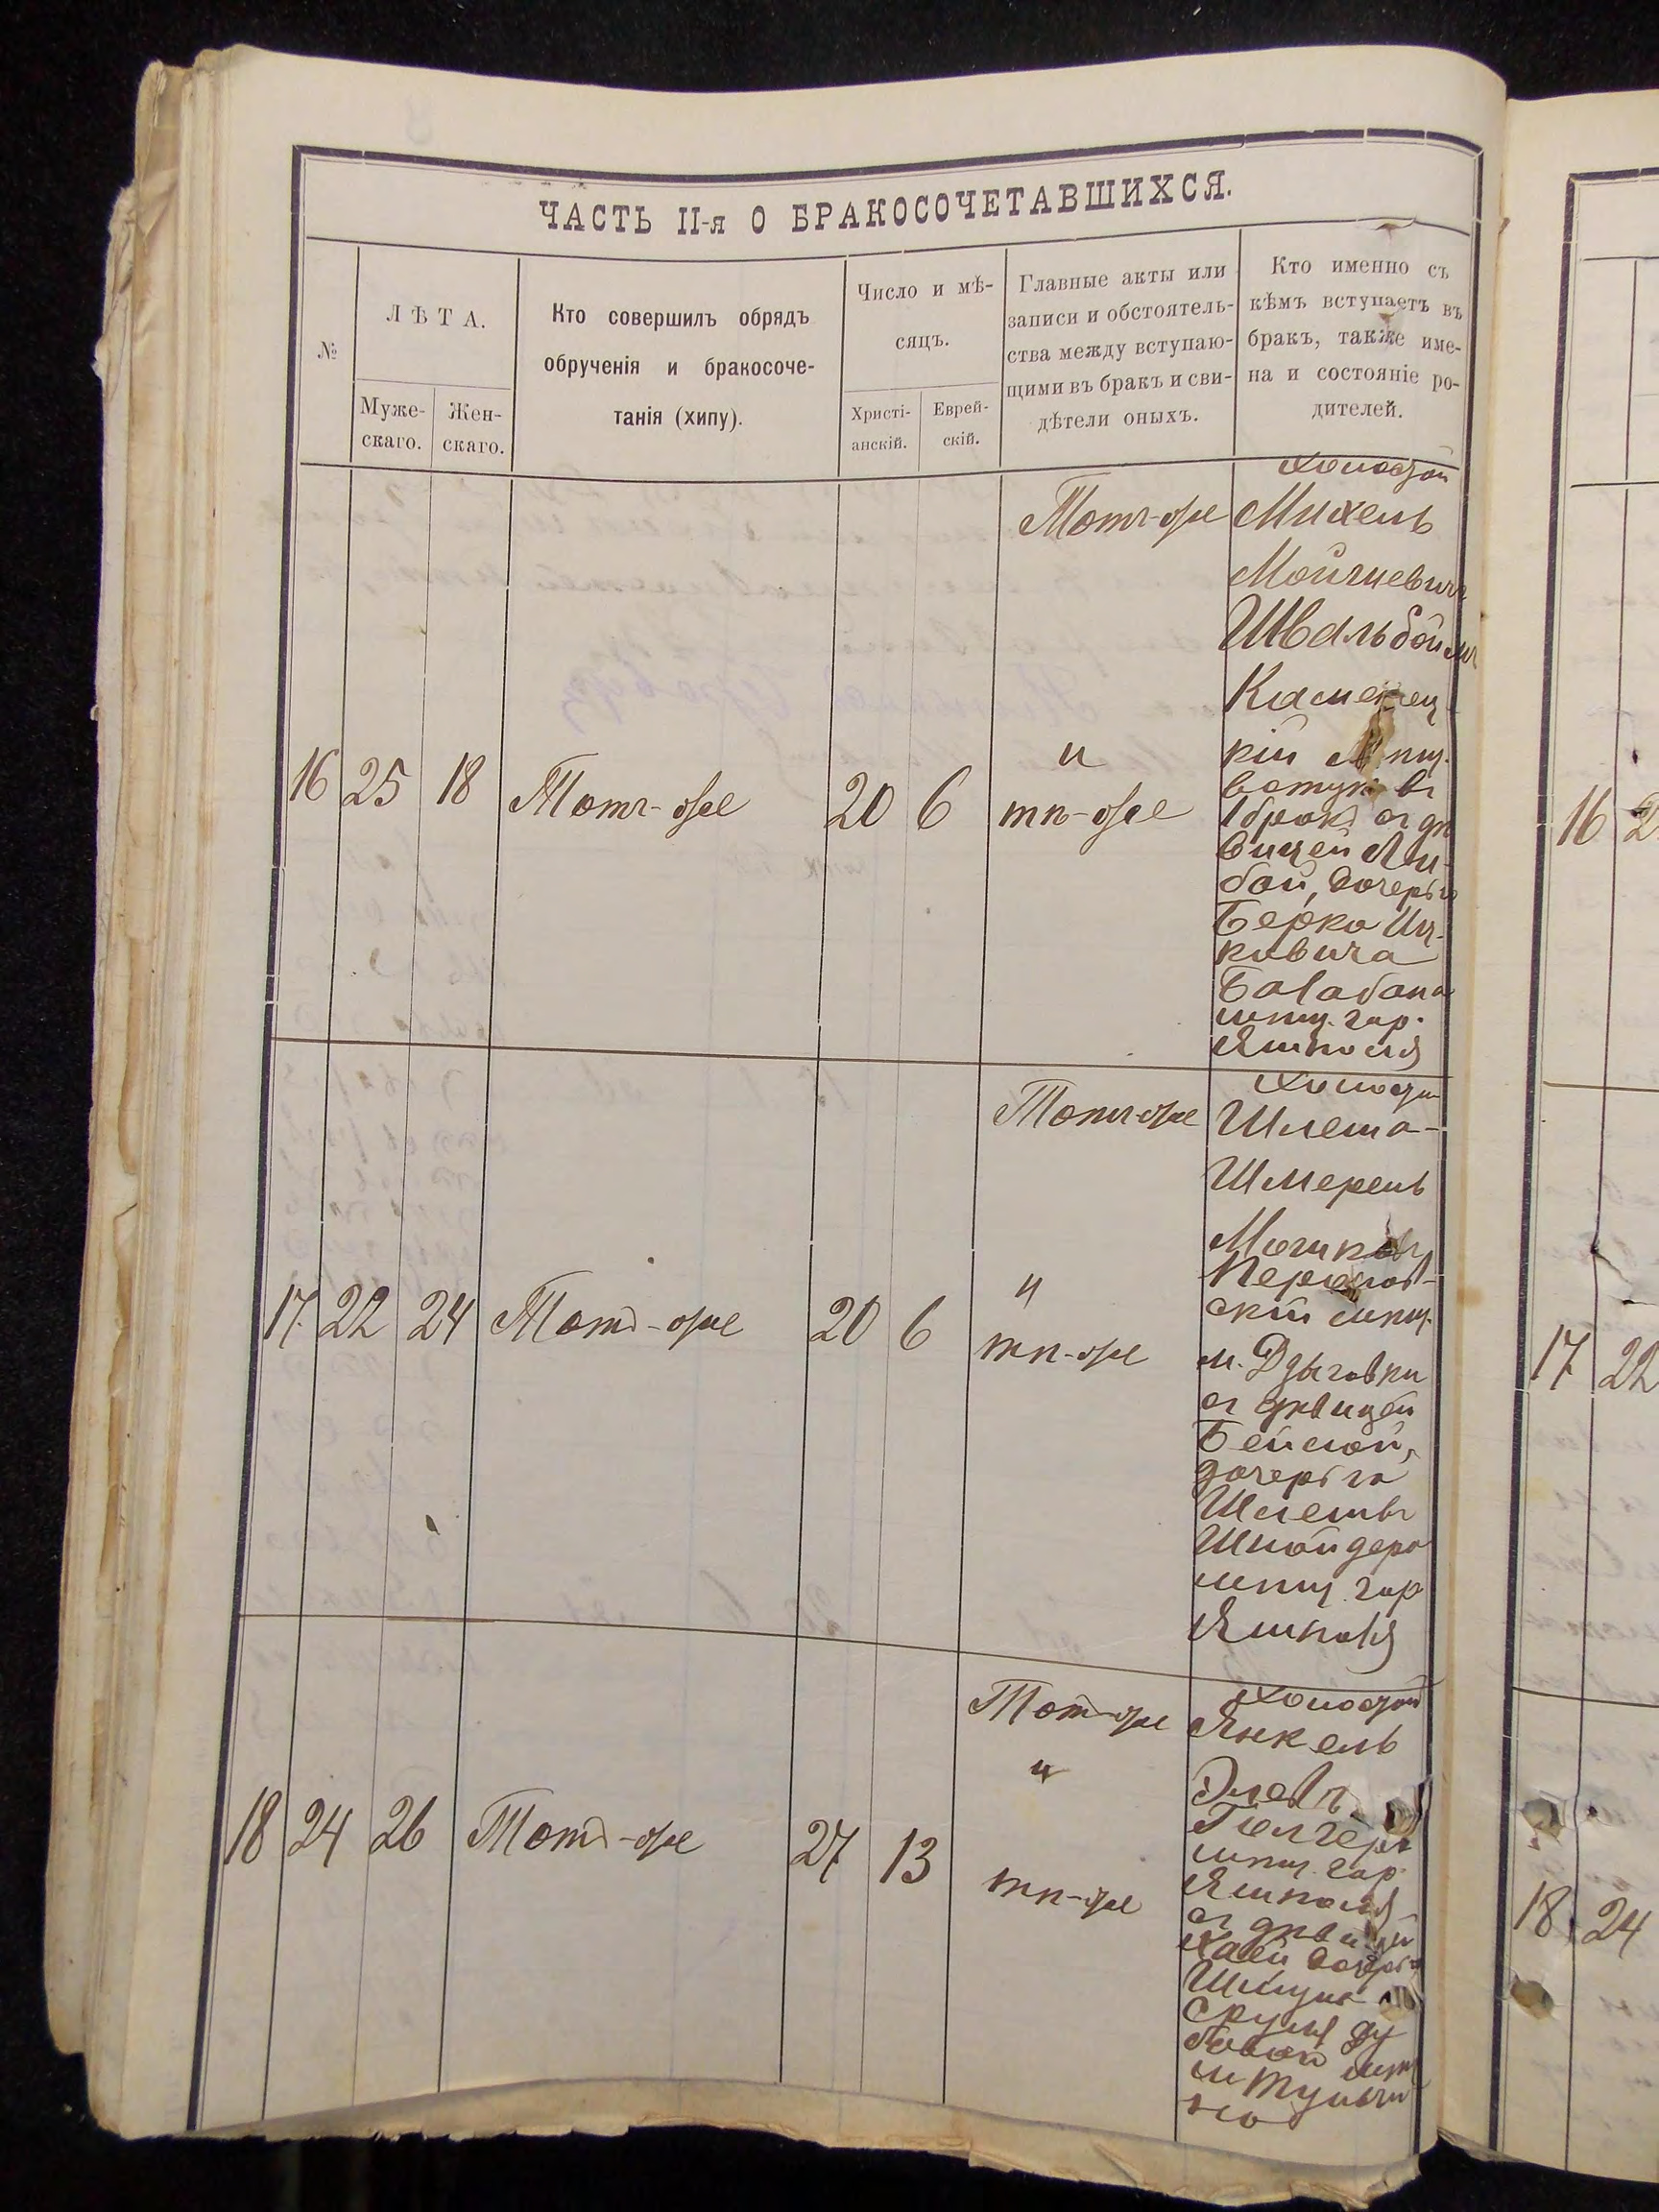 ЧАСТЬ II-я О БРАКОСОЧЕТАВШИХСЯ.
№
ЛѢТА.
Муже-
скаго.
Жен-
скаго.
Кто совершилъ обрядъ
обрученія и бракосоче-
танія (хипу).
Число и мѣ-
сяцъ.
Христі-
анскій.
Еврей-
скій.
Главные акты или
записи и обстоятель-
ства между вступаю-
щими въ бракъ и сви-
дѣтели оныхъ.
Кто именно съ
кѣмъ вступаетъ въ
бракъ, также име-
на и состояніе ро-
дителей.
16
25
18
Тотъ-же
20
6
Тотъ-же
и
тѣ-же
холостой
Михель
Мойшевичъ
Швальбоймъ
Каменец
кій мѣщ.
вступ. въ
1 бракъ съ дѣ
вицей Ли-
бой, дочерью
Берко Иц-
ковича
Балабана
мѣщ. гор.
Ямполя
17
22
24
Тотъ-же
20
6
Тотъ-же
и
тѣ-же
холостой
Шлема-
Шмерель
Мошков.
скій мѣщ.
м. Дзыговки
съ дѣвицей
Бейлой,
дочерью
Шлемы
Шнайдера
мѣщ. гор
Ямполя
18
24
26
Тотъ-же
27
13
Тотъ-же
и
тѣ-же
холостой
Янкель
мѣщ. гор.
Ямполя
съ дѣвицей
Хаей дочерью
16
17
22
18
24